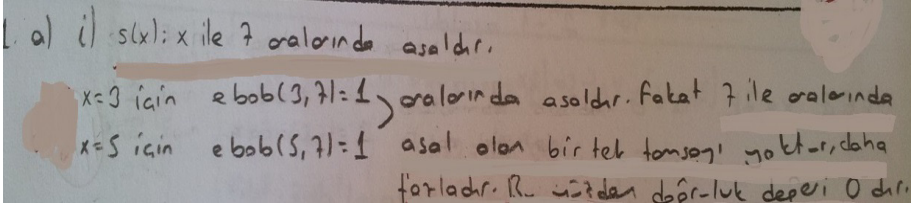 1. a) i) s(x): x ile 7 aralarında asaldır.
x=3 için ebob(3,7)=1 > aralarında asaldır. Fakat 7 ile aralarında
x=5 için ebob(5,7)=1 asal olan bir tek tamsayı yoktur, daha
fazladır. Bu yüzden doğruluk değeri 0 dır.